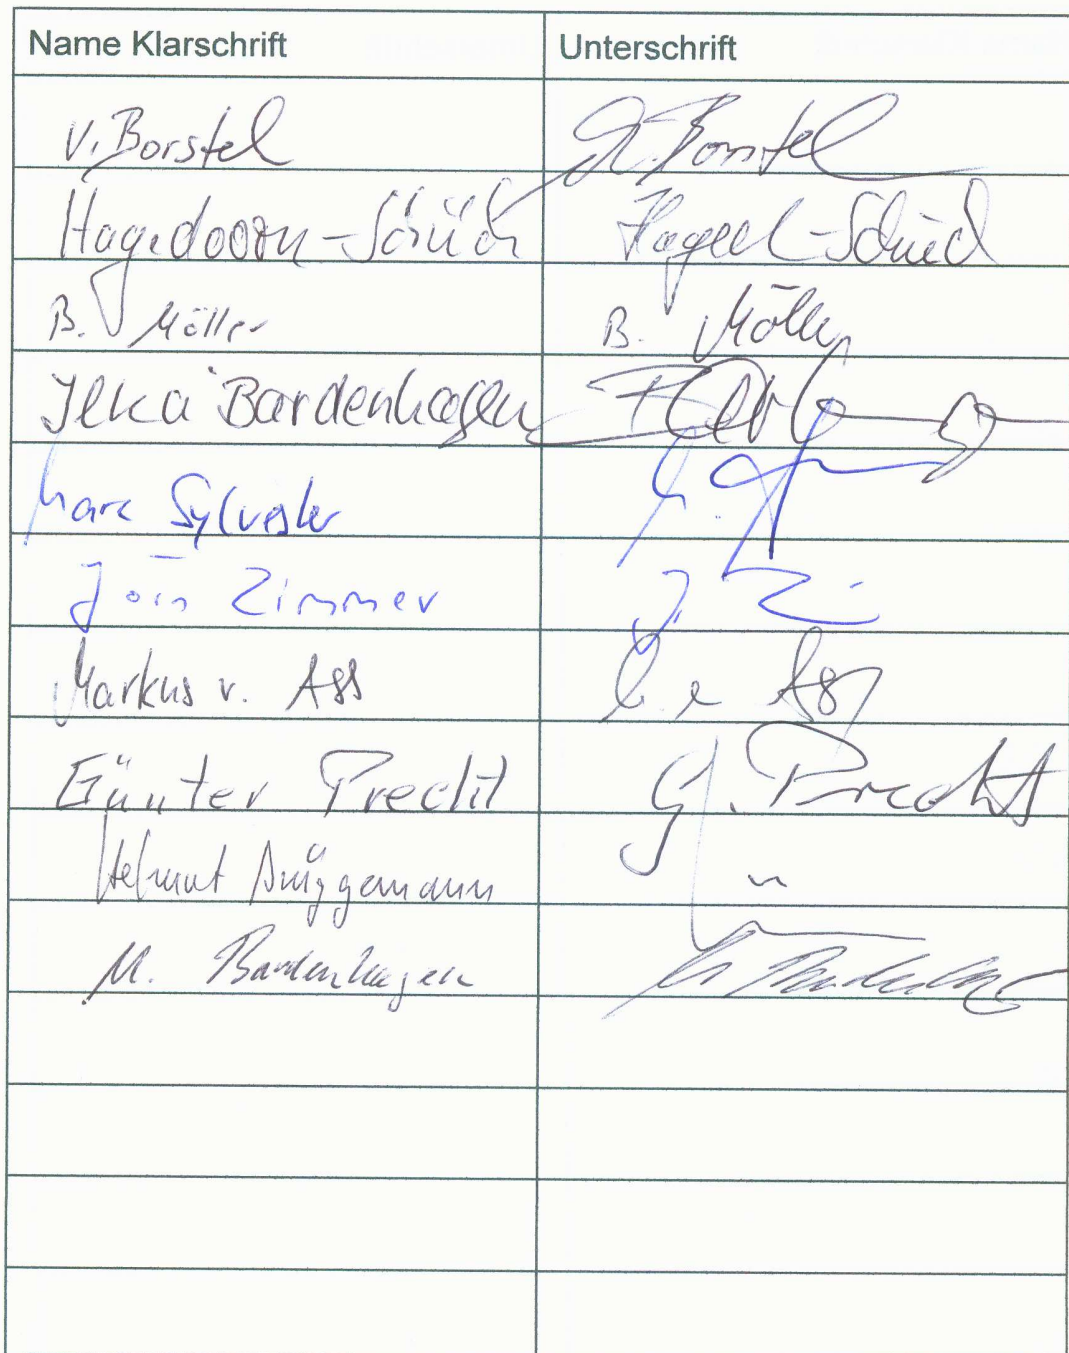 Name Klarschrift Unterschrift
v. Borstel Borstel
Hagedoorn-Schüch
B. Möller B. Möller
Ilka Bardenhagen
Marc Sylvester
Jörn Zimmer J. Zi
Markus v. Ass
Günter Precht G. Precht
Helmut Brüggemann
M. Bardenhagen